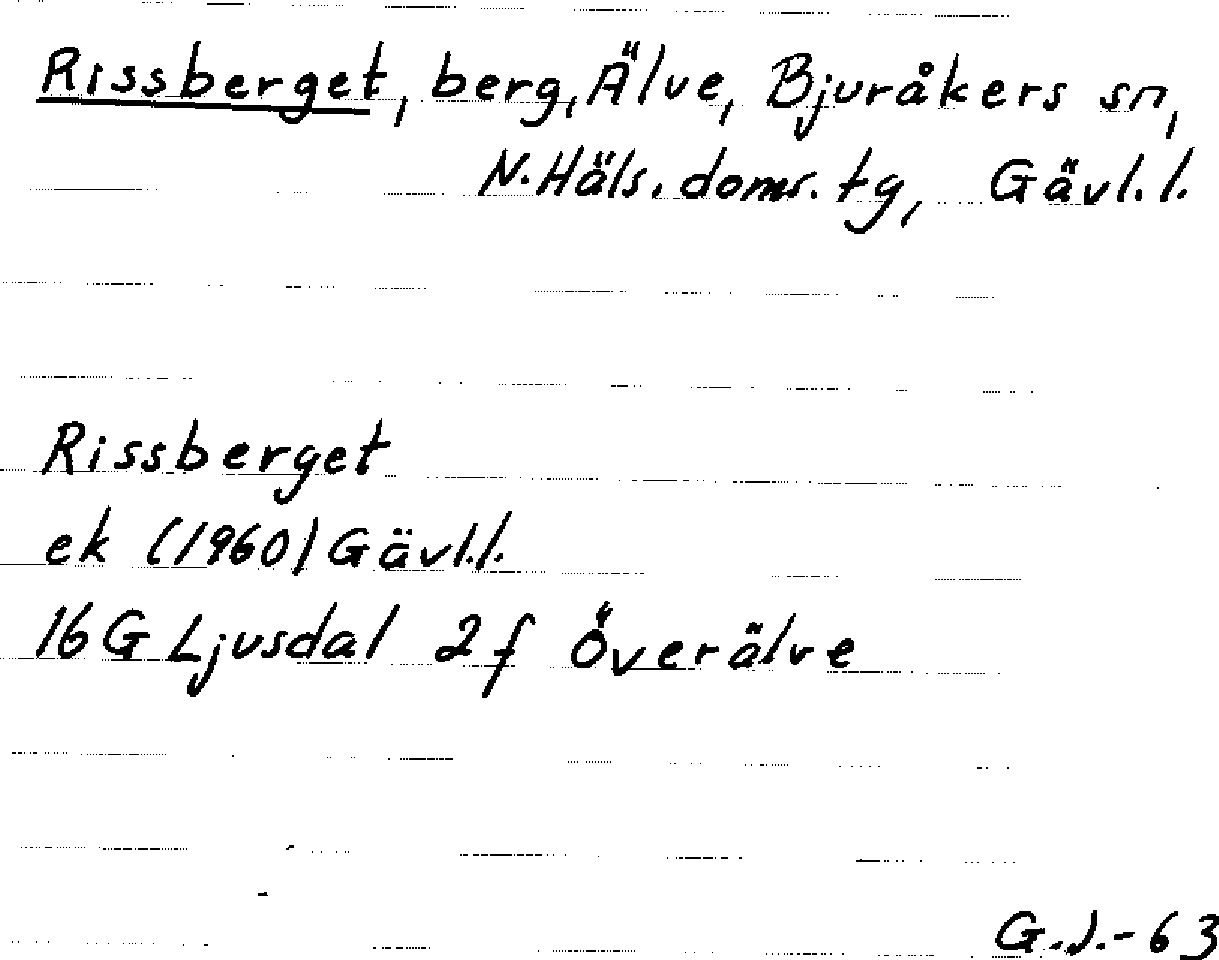 Rissberget, berg, Älve, Bjuråkers sn,
N. Häls. doms. tg, Gävl. l.
Rissberget
ek (1960) Gävl. l.
16 G Ljusdal 2 f Överälve
G.J.-63